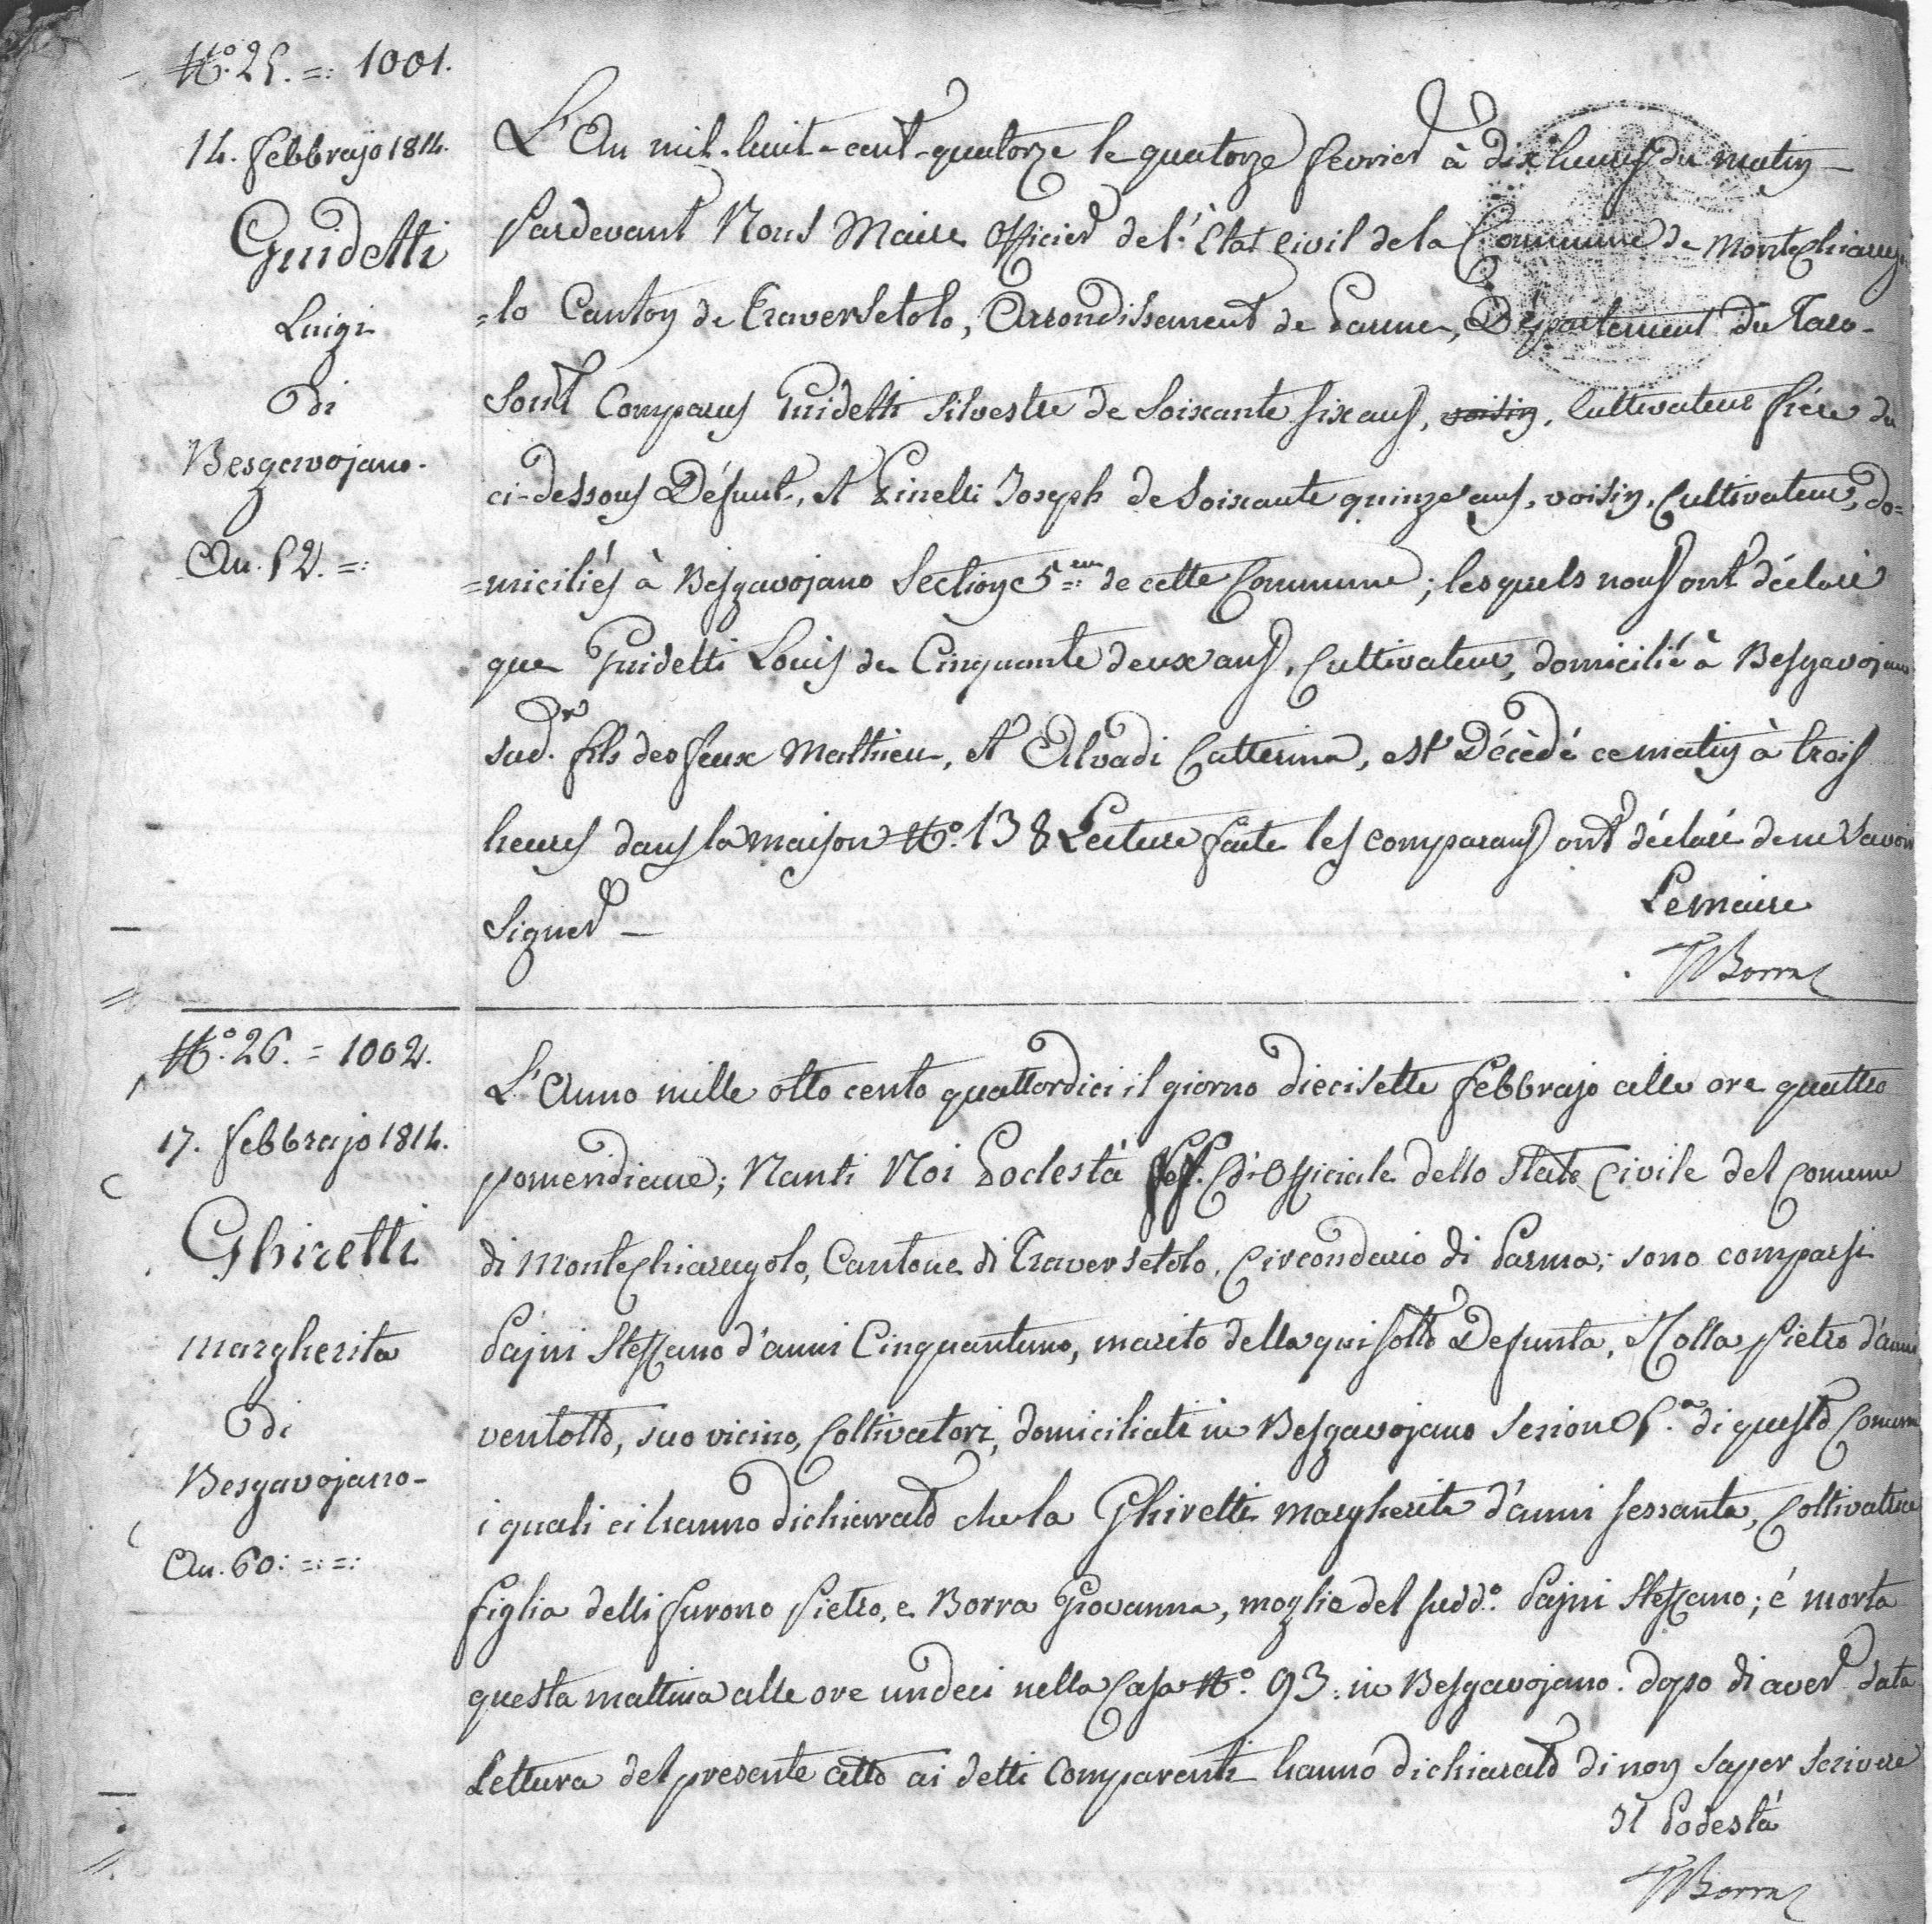 N.º 25. =: 1001.
14. Febbrajo 1814.
Guidetti
Luigi
di
Besgavojano.
An. 52. =:
L'An mil-huit-cent-quatorze le quatorze fevrier à dix heures du matin
Pardevant Nous Maire Officier de l'État Civil de la Commune de Montechiarugo
=lo Canton de Traversetolo, Arrondissement de Parme, Département du Taro
Sont Comparus Guidetti Silvestre de Soixante six ans, voisin, Cultivateur frére du
ci-dessous Défunt, et Pinelli Joseph de Soixante quinze ans, voisin, Cultivateur, do=
=miciliés à Besgavojano Section 5.eme de cette Commune; lesquels nous ont déclaré
que Guidetti Louis de Cinquante deux ans, Cultivateur, domicilié à Besgavojano
sud. fils des feux Mathieu, et Alvadi Catterina, est Décèdé ce matin à trois
heures dans la maison N.º 138 Lecture faite les comparans ont déclaré de ne Savoir
Signer
Le maire
Borra
N.º 26. = 1002.
17. Febbrajo 1814.
Ghiretti
Margherita
di
Besgavojano
An. 60: =: =:
L'Anno mille otto cento quattordici il giorno diecisette Febbrajo alle ore quattro
pomeridiane; Nanti Noi Podestà ff. d'Officiale dello Stato Civile del Comune
di Montechiarugolo, Cantone di Traversetolo, Circondario di Parma; sono comparsi
Pajni Steffano d'anni Cinquantuno, marito della qui sotto Defunta, Molla Pietro d'anni
ventotto, suo vicino, Coltivatori, domiciliati in Besgavojano Sezione 5.a di questo Comune
i quali ci hanno dichiarato che la Ghiretti Margherita d'anni sessanta, Coltivatrice
figlia delli furono Pietro, e Borra Giovanna, moglie del sudd.º Pajni Steffano; é morta
questa mattina alle ore undeci nella Casa N.º 93: in Besgavojano. dopo di aver data
Lettura del presente atto ai detti Comparenti hanno dichiarato di non saper scrivere
Il Podestà
Borra